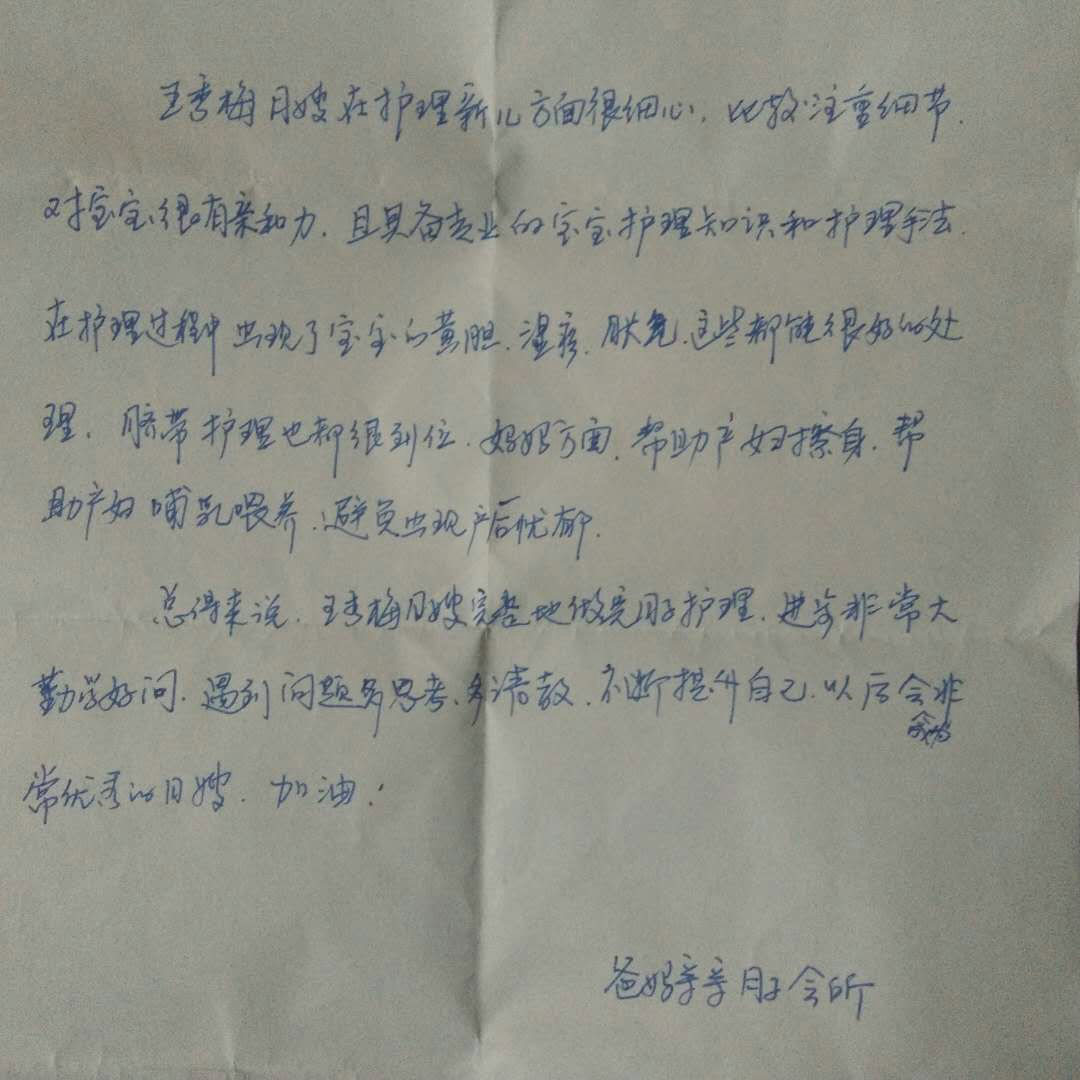 王秀梅月嫂在护理新儿方面很细心，比较注重细节，
对宝宝很有亲和力，且具备专业的宝宝护理知识和护理手法，
在护理过程中出现了宝宝的黄胆、湿疹、肤皂，这些都能很好的处
理，脐带护理也都很到位，妈妈方面，帮助产妇擦身，帮
助产妇哺乳喂养，避免出现产后忧郁。
总得来说，王秀梅月嫂完整地做完月子护理，进步非常大
勤学好问，遇到问题多思考，多请教，不断提升自己，以后会非
会成为
常优秀的月嫂，加油！
爸妈亲亲月子会所